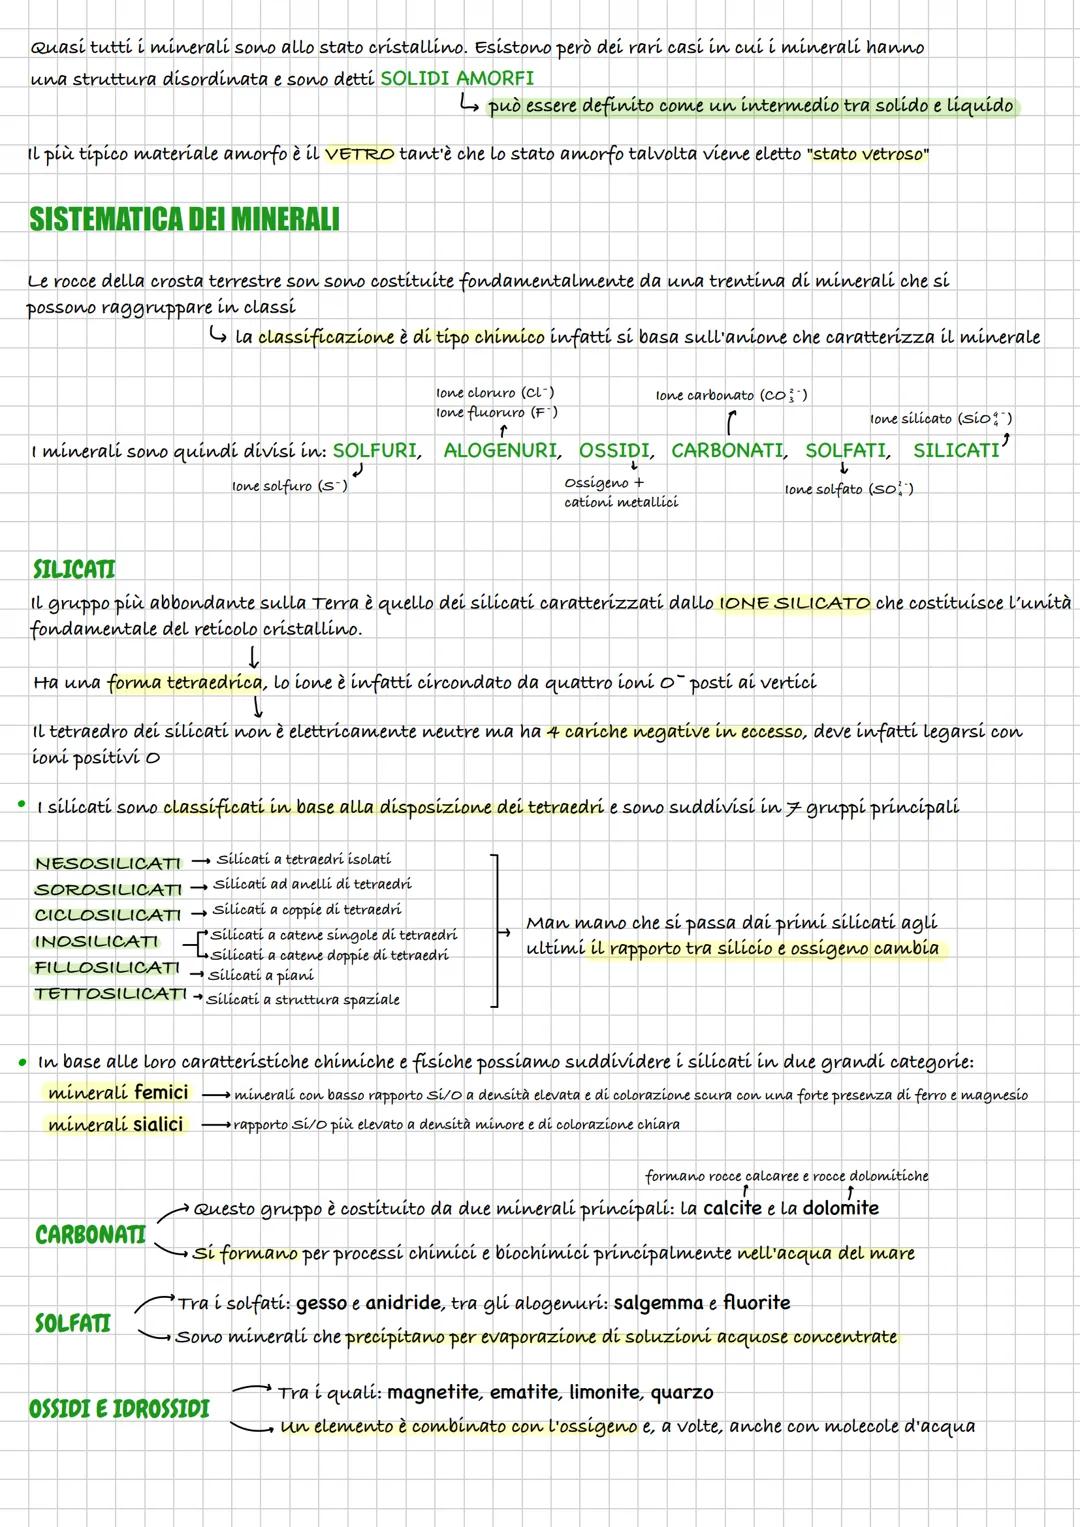 Quasi tutti i minerali sono allo stato cristallino. Esistono però dei rari casi in cui i minerali hanno
una struttura disordinata e sono detti SOLIDI AMORFI
↳ può essere definito come un intermedio tra solido e liquido
Il più tipico materiale amorfo è il VETRO tant'è che lo stato amorfo talvolta viene eletto "stato vetroso"
SISTEMATICA DEI MINERALI
Le rocce della crosta terrestre son sono costituite fondamentalmente da una trentina di minerali che si
possono raggruppare in classi
↳ la classificazione è di tipo chimico infatti si basa sull'anione che caratterizza il minerale
Ione cloruro (Cl⁻)
Ione fluoruro (F⁻)
Ione carbonato (CO₃²⁻)
Ione silicato (SiO₄⁴⁻)
I minerali sono quindi divisi in: SOLFURI, ALOGENURI, OSSIDI, CARBONATI, SOLFATI, SILICATI
Ione solfuro (S⁻)
Ossigeno +
cationi metallici
Ione solfato (SO₄²⁻)
SILICATI
Il gruppo più abbondante sulla Terra è quello dei silicati caratterizzati dallo IONE SILICATO che costituisce l'unità
fondamentale del reticolo cristallino.
↓
Ha una forma tetraedrica, lo ione è infatti circondato da quattro ioni O⁻ posti ai vertici
↓
Il tetraedro dei silicati non è elettricamente neutre ma ha 4 cariche negative in eccesso, deve infatti legarsi con
ioni positivi O
• I silicati sono classificati in base alla disposizione dei tetraedri e sono suddivisi in 7 gruppi principali
NESOSILICATI → Silicati a tetraedri isolati
SOROSILICATI → Silicati ad anelli di tetraedri
CICLOSILICATI → Silicati a coppie di tetraedri
INOSILICATI → Silicati a catene singole di tetraedri
→ Silicati a catene doppie di tetraedri
FILLOSILICATI → Silicati a piani
TETTOSILICATI → Silicati a struttura spaziale
→ Man mano che si passa dai primi silicati agli
ultimi il rapporto tra silicio e ossigeno cambia
• In base alle loro caratteristiche chimiche e fisiche possiamo suddividere i silicati in due grandi categorie:
minerali femici → minerali con basso rapporto Si/O a densità elevata e di colorazione scura con una forte presenza di ferro e magnesio
minerali sialici → rapporto Si/O più elevato a densità minore e di colorazione chiara
formano rocce calcaree e rocce dolomitiche
Questo gruppo è costituito da due minerali principali: la calcite e la dolomite
CARBONATI
Si formano per processi chimici e biochimici principalmente nell'acqua del mare
Tra i solfati: gesso e anidride, tra gli alogenuri: salgemma e fluorite
SOLFATI
Sono minerali che precipitano per evaporazione di soluzioni acquose concentrate
Tra i quali: magnetite, ematite, limonite, quarzo
OSSIDI E IDROSSIDI
Un elemento è combinato con l'ossigeno e, a volte, anche con molecole d'acqua